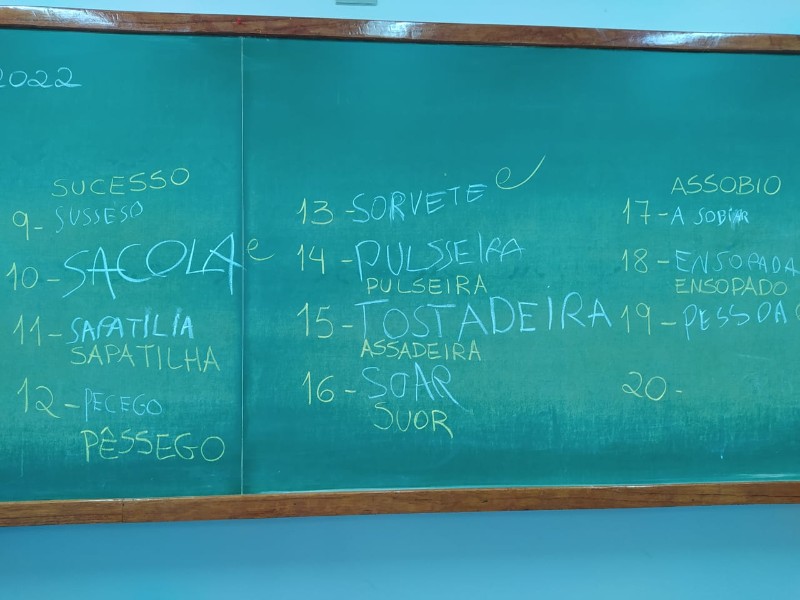 2022
SUCESSO
9- SUSSESO
10- SACOLA
11- SAPATILIA
SAPATILHA
12- PECEGO
PÊSSEGO
13- SORVETE
14- PULSSEIRA
PULSEIRA
15- TOSTADEIRA
ASSADEIRA
16- SOAR
SUOR
ASSOBIO
17- A SOBIAR
18- ENSOPADA
ENSOPADO
19- PESSOA
20-